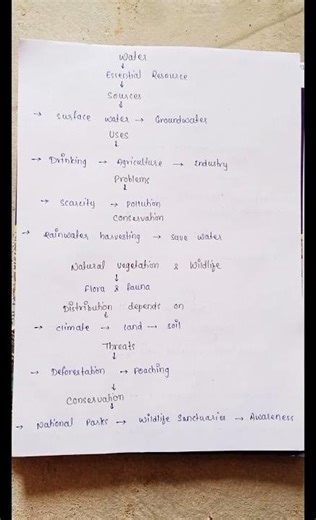 Water
↓
Essential Resource
↓
Sources
↓
→ Surface water → Groundwater
Uses
↓
→ Drinking → Agriculture → Industry
Problems
↓
→ Scarcity → Pollution
Conservation
→ Rainwater harvesting → Save water
Natural vegetation & Wildlife
↓
Flora & fauna
Distribution depends on
↓
→ climate → land → soil
Threats
↓
→ Deforestation → Poaching
↓
Conservation
↓
→ National Parks → Wildlife Sanctuaries → Awareness